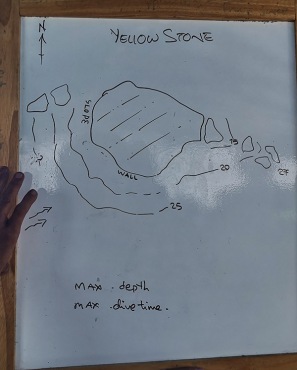 N
YELLOW STONE
SLOPE
15
WALL
20
27
25
MAX . depth
MAX . dive time .